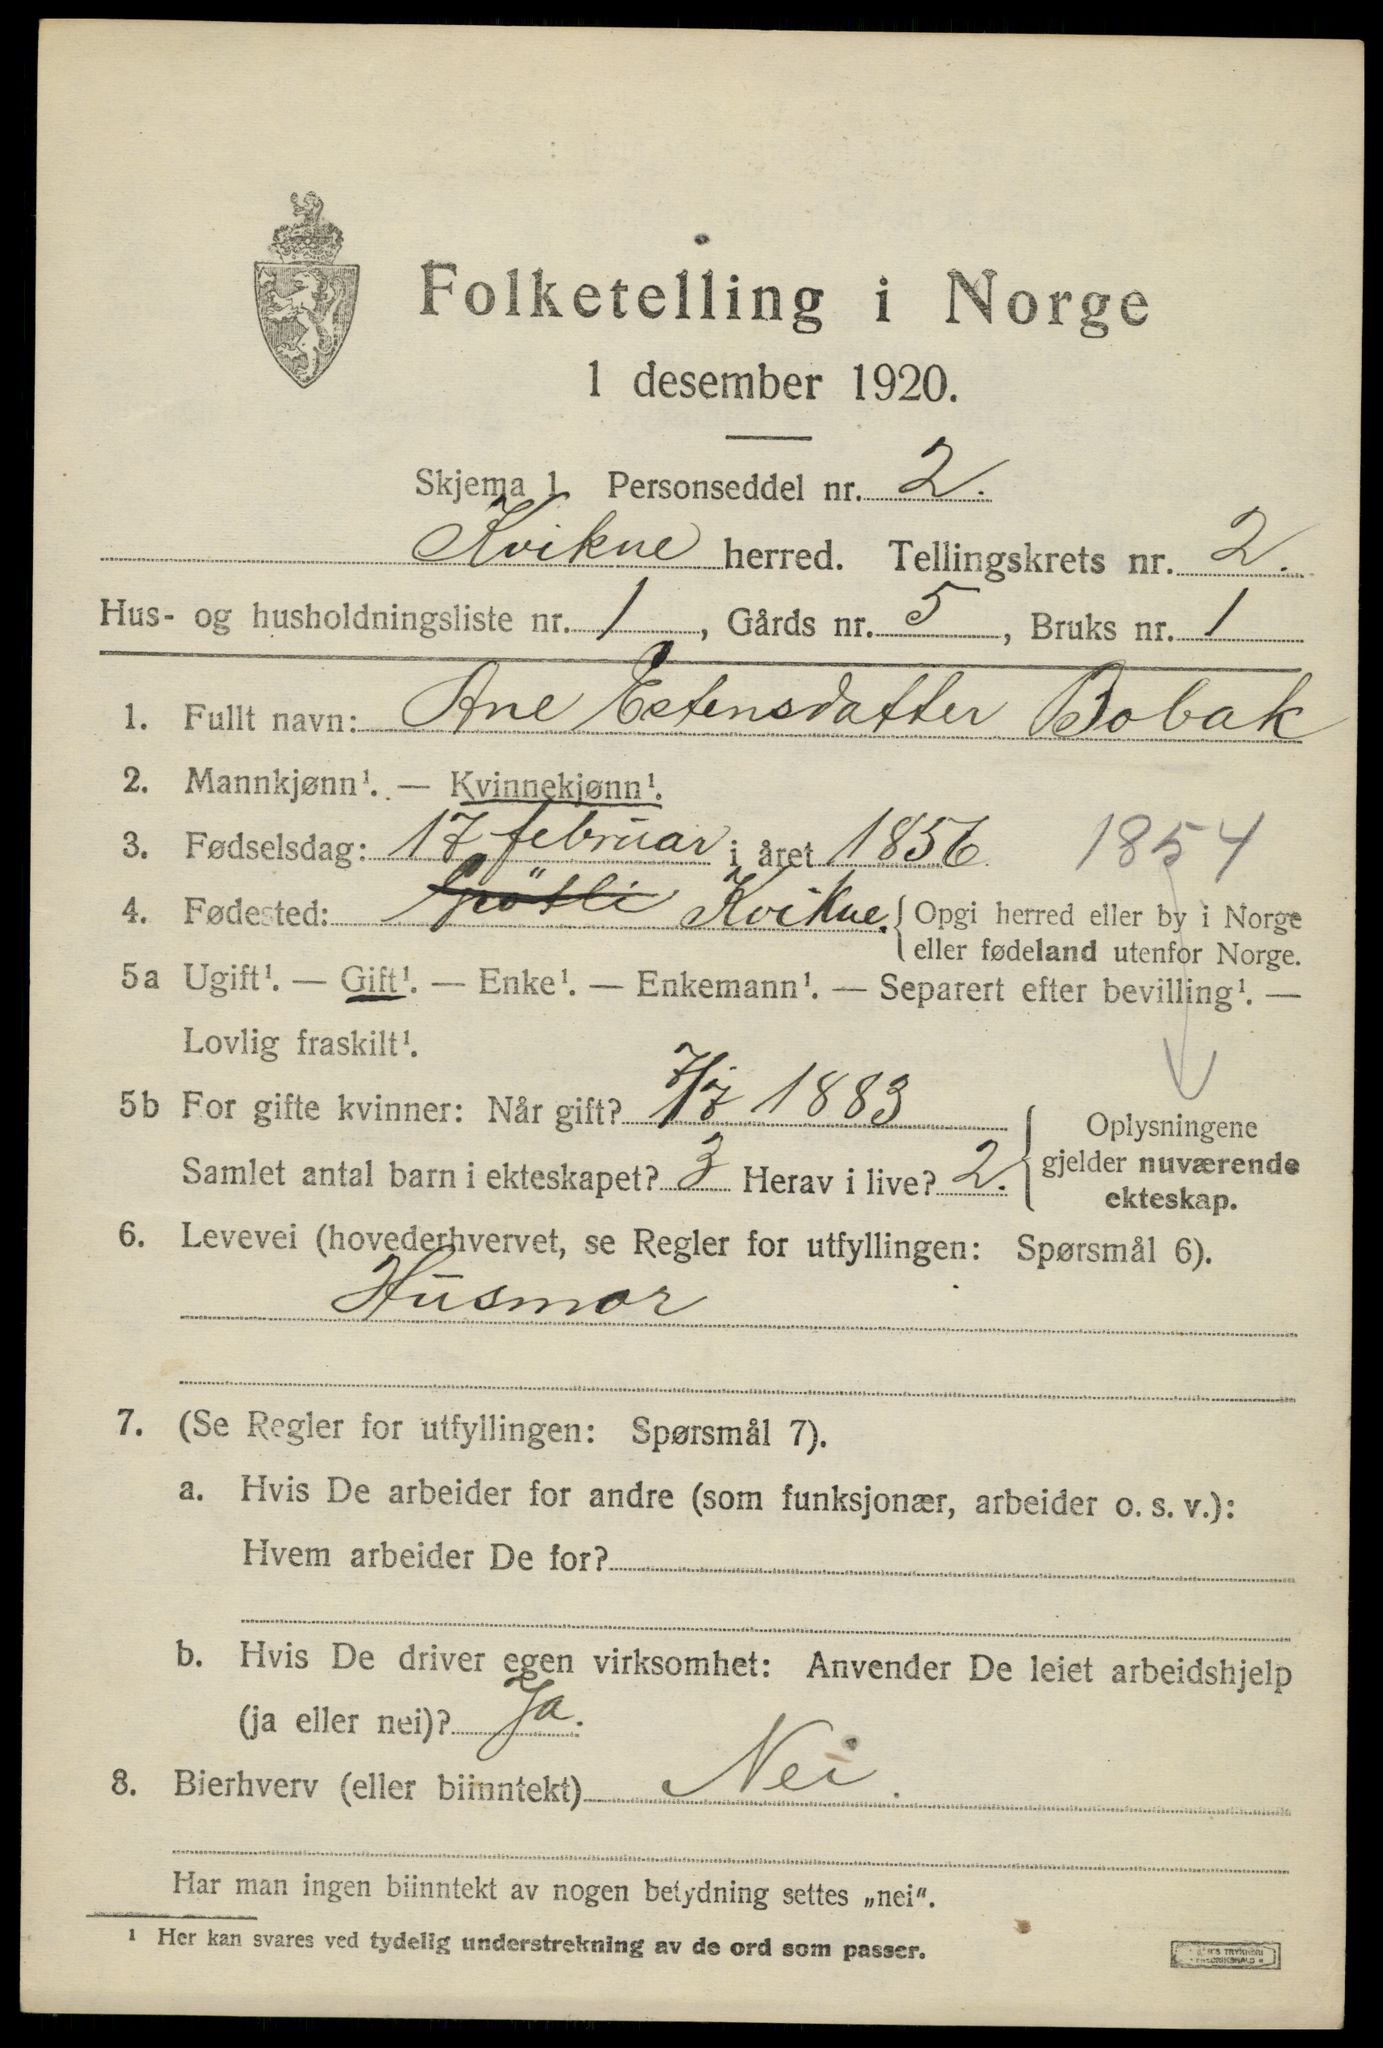 Folketelling i Norge
1 desember 1920.
Skjema 1 Personseddel nr. 2.
Kvikne herred. Tellingskrets nr. 2.
Hus- og husholdningsliste nr. 1, Gårds nr. 5, Bruks nr. 1
1. Fullt navn: Ane Estensdatter Bobak
2. Mannkjønn¹. — Kvinnekjønn¹.
3. Fødselsdag: 17 februar i året 1856 1854
4. Fødested: Kvikne. { Opgi herred eller by i Norge
eller fødeland utenfor Norge.
5a Ugift¹. — Gift¹. — Enke¹. — Enkemann¹. — Separert efter bevilling¹. —
Lovlig fraskilt¹.
5b For gifte kvinner: Når gift? 7/7 1883
Samlet antal barn i ekteskapet? 3 Herav i live? 2.
{ Oplysningene
gjelder nuværende
ekteskap.
6. Levevei (hovederhvervet, se Regler for utfyllingen: Spørsmål 6).
Husmor
7. (Se Regler for utfyllingen: Spørsmål 7).
a. Hvis De arbeider for andre (som funksjonær, arbeider o. s. v.):
Hvem arbeider De for?
b. Hvis De driver egen virksomhet: Anvender De leiet arbeidshjelp
(ja eller nei)? Ja.
8. Bierhverv (eller biinntekt) Nei.
Har man ingen biinntekt av nogen betydning settes „nei“.
¹ Her kan svares ved tydelig understrekning av de ord som passer.
TRYKKERI
FREDRIKSHALD